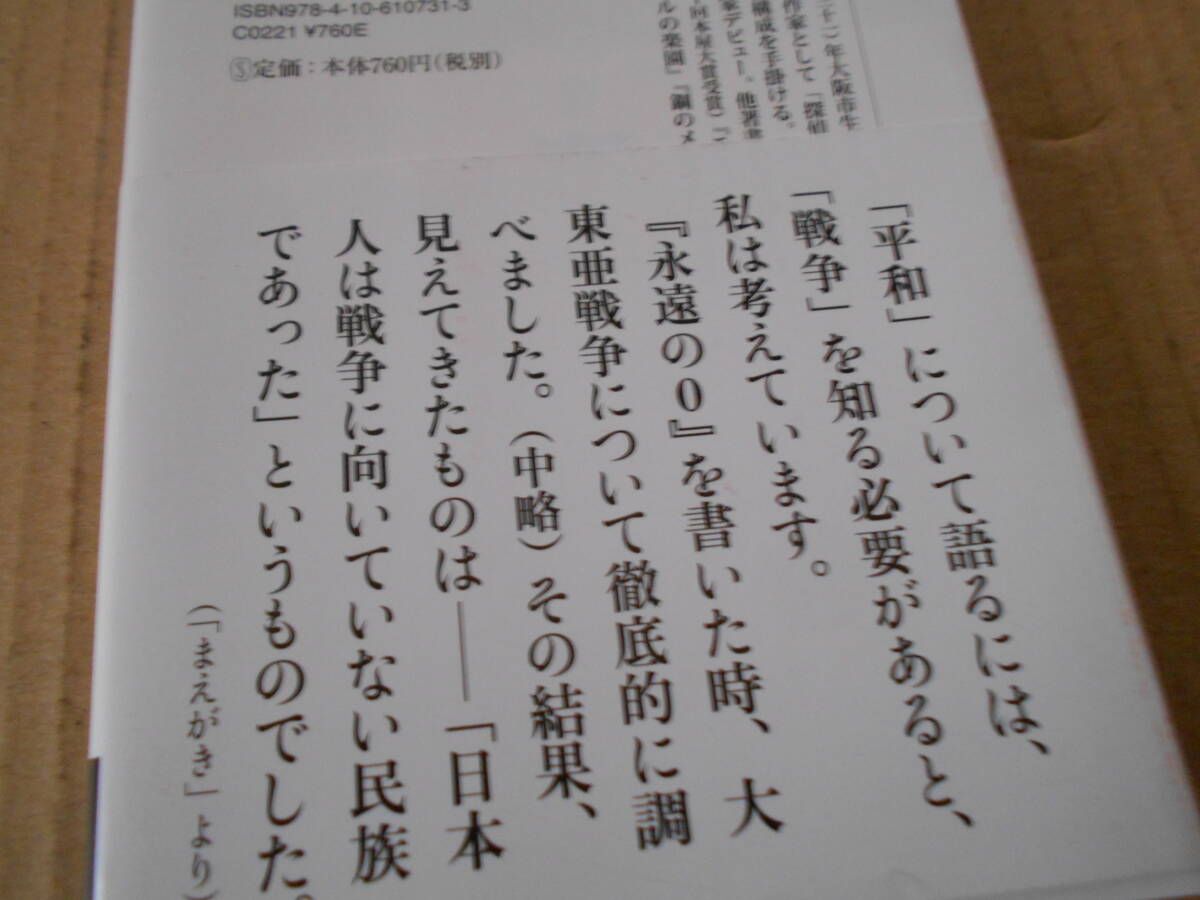 ISBN978-4-10-610731-3
C0221 ¥760E
Ⓢ定価：本体760円（税別）
年大阪市生
作家として「探偵
構成を手掛ける。
デビュー。他著書
本屋大賞受賞）『
ルの楽園』『鋼のメ
「平和」について語るには、
「戦争」を知る必要があると、
私は考えています。
『永遠の0』を書いた時、大
東亜戦争について徹底的に調
べました。（中略）その結果、
見えてきたものは――「日本
人は戦争に向いていない民族
であった」というものでした。
（「まえがき」より）